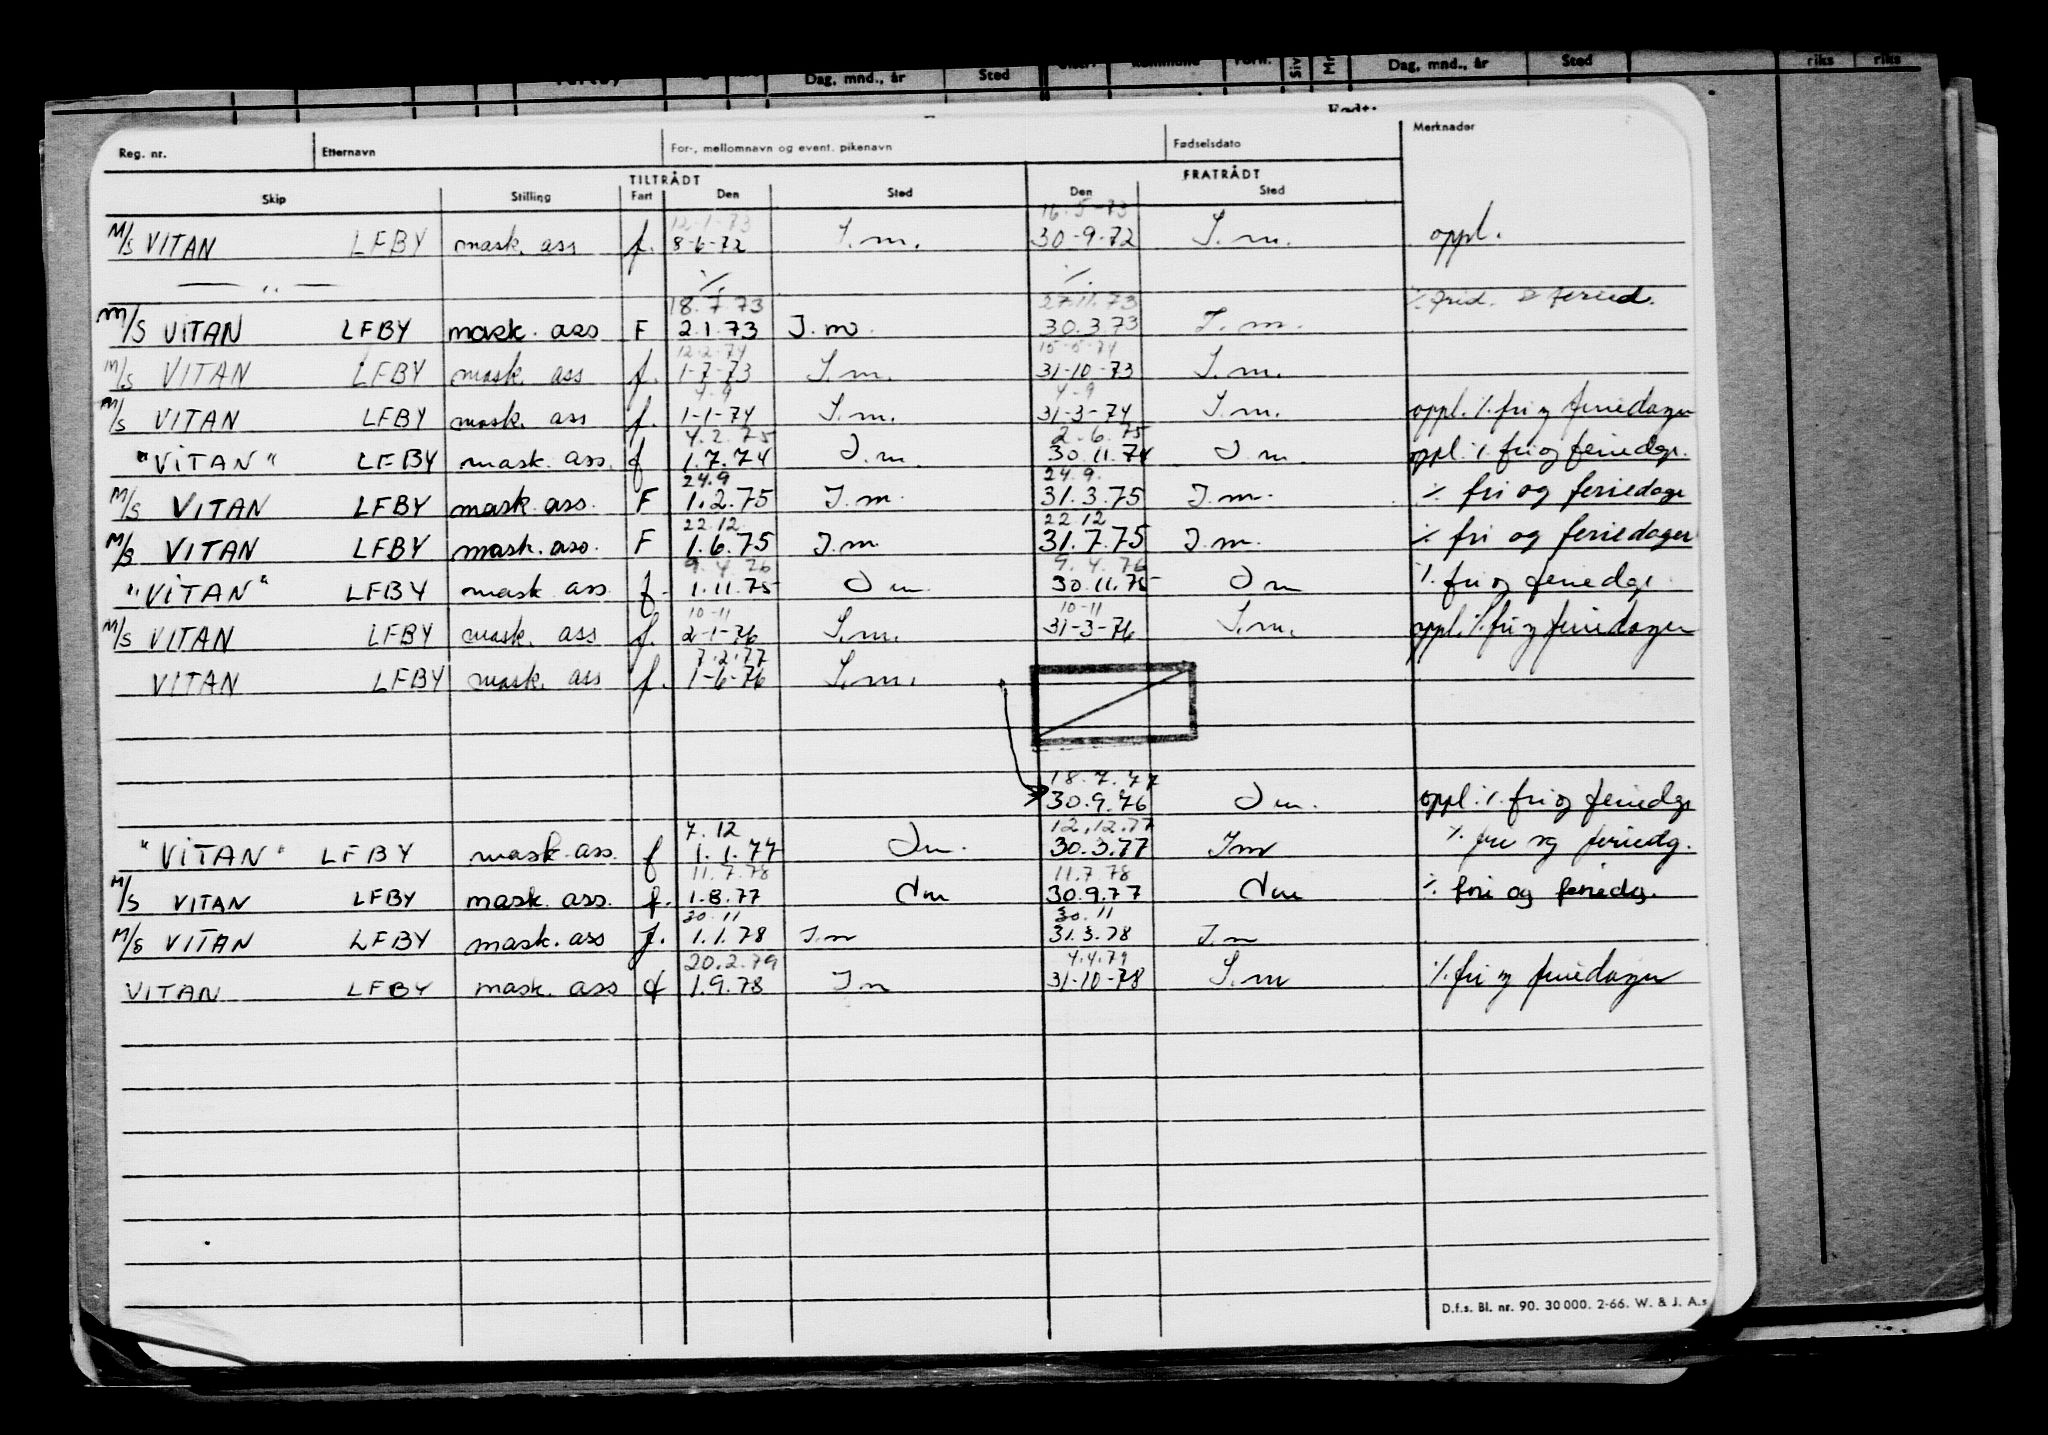 Dag, mnd., år Sted Dag, mnd., år Sted riks riks
Reg. nr. Etternavn For-, mellomnavn og event. pikenavn Fødselsdato Merknader
TILTRÅDT FRATRÅDT
Skip Stilling Fart Den Sted Den Sted
12-1-73 16-5-73
M/S VITAN LFBY mask. ass f. 8-6-72 I.m. 30-9-72 I.m. oppl.
— " — ./. ./.
18.7.73 27.11.73 ./. frid. & feried.
M/S VITAN LFBY mask. ass F 2.1.73 I.m. 30.3.73 I.m.
12-2-74 15-5-74
M/S VITAN LFBY mask. ass f. 1-7-73 I.m. 31-10-73 I.m.
4-9 4-9
M/S VITAN LFBY mask. ass f. 1-1-74 I.m. 31-3-74 I.m. oppl. ./. fri og feriedager
4.2.75 2.6.75
"VITAN" LFBY mask. ass. f 1.7.74 I.m. 30.11.74 I.m. oppl. ./. fri og feriedgr.
24.9 24.9.
M/S VITAN LFBY mask. ass. F 1.2.75 I.m. 31.3.75 I.m. ./. fri og feriedage
22.12. 22.12
M/S VITAN LFBY mask. ass. F 1.6.75 I.m. 31.7.75 I.m. ./. fri og feriedager
9.4.76 9.4.76
"VITAN" LFBY mask ass. f. 1.11.75 I m. 30.11.75 I m ./. fri og feriedgr.
10-11 10-11
M/S VITAN LFBY mask. ass f. 2-1-76 I.m. 31-3-76 I.m. oppl. ./. fri og feriedager
7.2.77
VITAN LFBY mask. ass f. 1-6-76 I.m.
18.7.77
30.9.76 I m. oppl. ./. fri og feriedgr
7.12 12.12.77
"VITAN" LFBY mask ass. f 1.1.77 I m. 30.3.77 I m ./. fri og feriedg.
11.7.78 11.7.78
M/S VITAN LFBY mask. ass. f. 1.8.77 I m 30.9.77 I m ./. fri og feriedg.
30.11 30.11
M/S VITAN LFBY mask. ass f. 1.1.78 I.m 31.3.78 I.m
20.2.79 4.4.79
VITAN LFBY mask. ass f 1.9.78 I m 31-10-78 I.m ./. fri og feriedager
D.f.s. Bl. nr. 90. 30 000. 2-66. W. & J. A.s